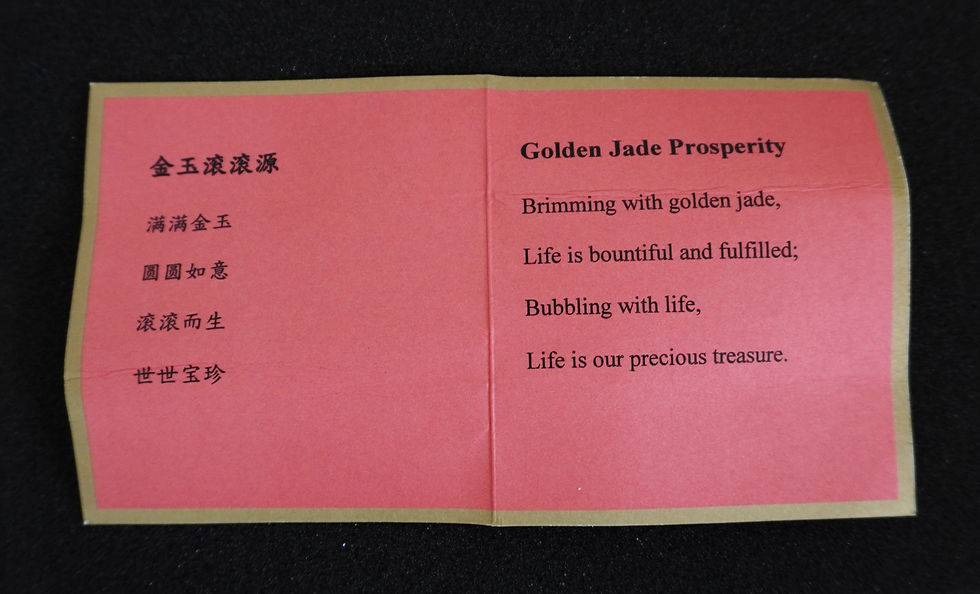 金玉滚滚源
满满金玉
圆圆如意
滚滚而生
世世宝珍
Golden Jade Prosperity
Brimming with golden jade,
Life is bountiful and fulfilled;
Bubbling with life,
Life is our precious treasure.